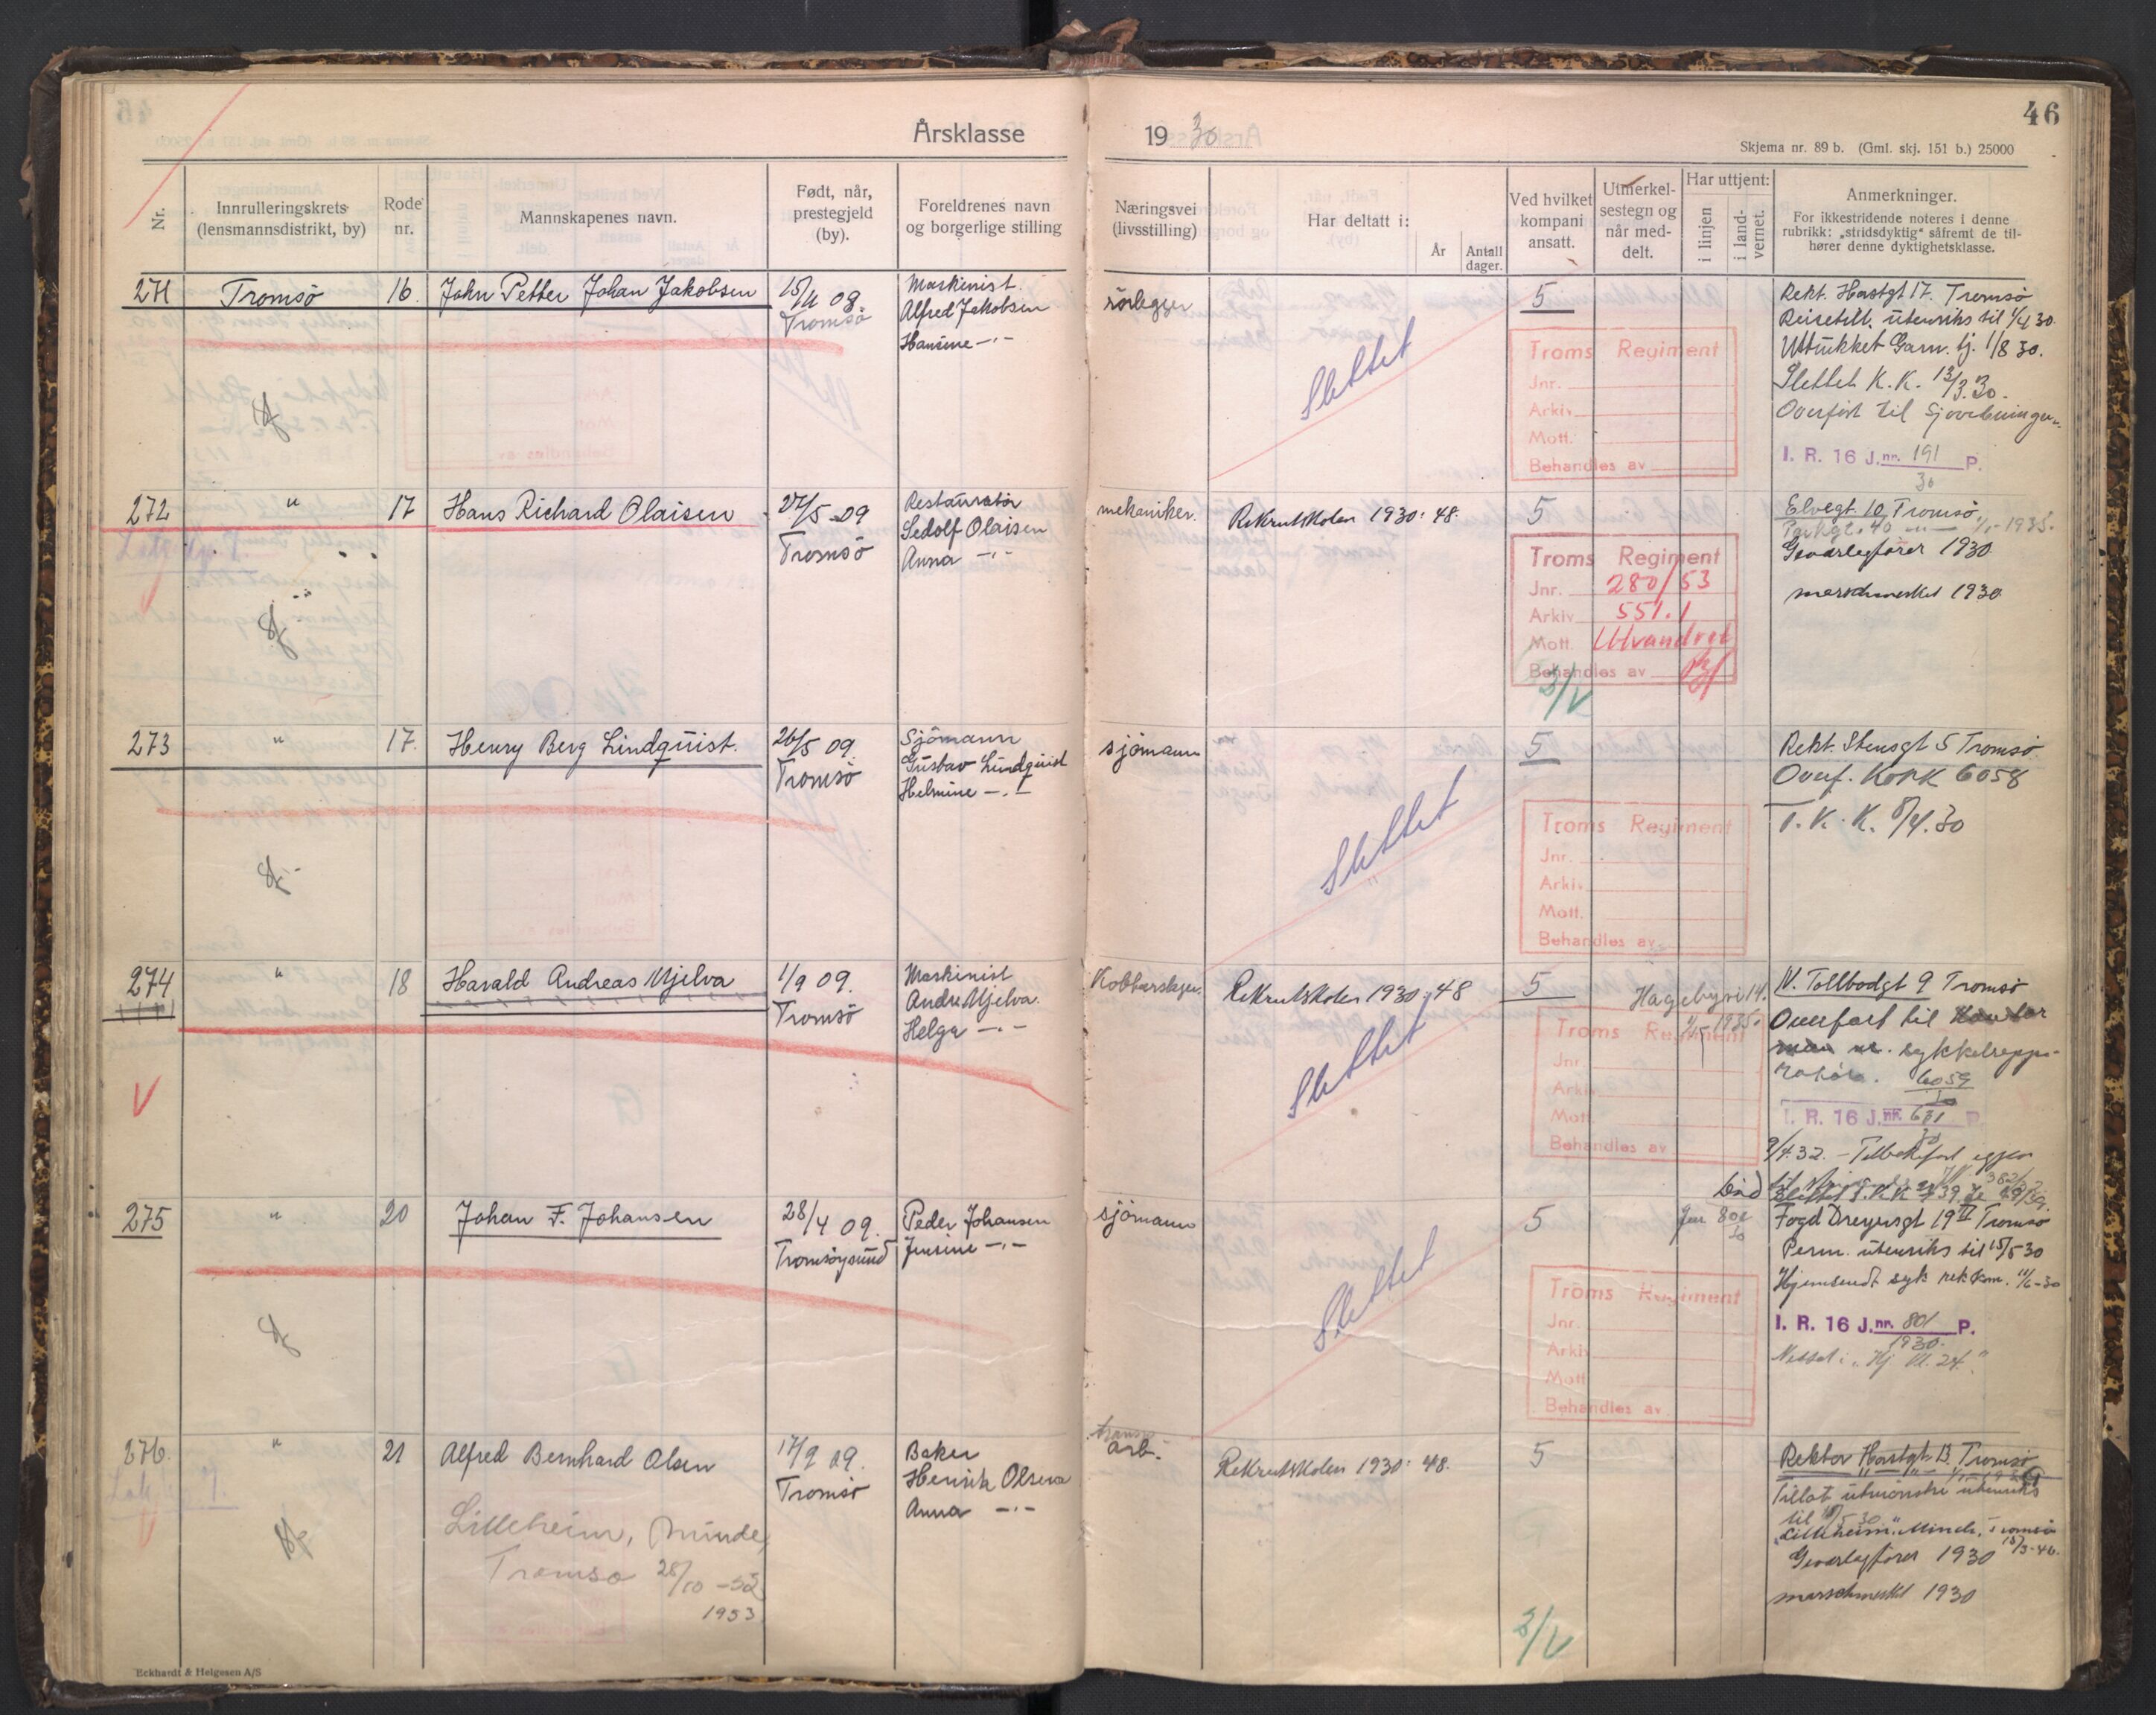 46
Årsklasse
1930
Skjema nr. 89 b. (Gml. skj. 151 b.) 25000
Nr.
Innrulleringskrets (lensmannsdistrikt, by)
Rode nr.
Mannskapenes navn.
Født, når, prestegjeld (by).
Foreldrenes navn og borgerlige stilling
Næringsvei (livsstilling)
Har deltatt i:
År
Antall dager.
Ved hvilket kompani ansatt.
Utmerkelsestegn og når meddelt.
Har uttjent:
i linjen
i landvernet.
Anmerkninger.
For ikkestridende noteres i denne rubrikk: „stridsdyktig“ såfremt de tilhører denne dyktighetsklasse.
271
Tromsö
16.
John Petter Johan Jakobsen
Tromsö
Maskinist.
Alfred Jakobsen
Hansine -"-
rörlegger
Slettet
5
Troms Regiment
Jnr.
Arkiv
Mott.
Behandles av
Rekt. Hastgt 17. Tromsö
Reisetill. utenriks til 1/4 30.
Uttrukket Garn. tj. 1/8 30.
Slettet K.K. 13/3.30.
Overfört til Sjovebningen
I. R. 16 J.nr. 191 P.
30
272
"
17
Hans Richard Olaisen
27/5-09
Tromsö
Restauratör
Sedolf Olaisen
Anna -"-
mekaniker.
Rekrutskolen 1930: 48.
5
Troms Regiment
Jnr. 280/53
Arkiv 551.1
Mott. Utvandret
Behandles av
3/V
Elvegt. 10 Tromsö
Parkgt. 40 -"- 1/1-1935.
Geværlagförer 1930
marschmerket 1930
273
"
17.
Henry Berg Lindquist.
26/5 09.
Tromsö
Sjömann
Gustav Lindquist
Helmine -"-
sjömann
Slettet
5
Troms Regiment
Jnr.
Arkiv.
Mott.
Behandles av
Rekt. Stensgt 5 Tromsö
Overf. KopK 6058
T.K.K. 8/4.30
274
"
18
Harald Andreas Mjelva
1/9 09.
Tromsö
Maskinist
Andr. Mjelva.
Helga -"-
Kobberslager.
Rekrutskolen 1930: 48
Slettet
5
Hagebyvei 14.
1935.
Troms Regiment
Jnr
Arkiv
Mott
Behandles av
N. Tollbodgt 9 Tromsö
Overfört til
sykkelreppa-
ratör. 6059
30
I. R. 16 J.nr. 631 P.
30
9/4.32. - Tilbakefört igjen
275
"
20
Johan F. Johansen
28/4 09.
Tromsöysund
Peder Johansen
Jensine -"-
sjömann
Slettet
5
Jnr 801
30
Troms Regiment
Jnr.
Arkiv
Mott
Behandles av
Fogd Dreyersgt 19 II Tromsö
Perm. utenriks til 15/5 30
Hjemsendt syk rek.kom. 11/6-30
I. R. 16 J.nr. 801 P.
1930.
276.
"
21
Alfred Bernhard Olsen
17/9 09.
Tromsö
Baker
Henrik Olsen
Anna -"-
arb.
Rekrutskolen 1930: 48.
5
3/V
Lilleheim, Minde,
Tromsö 28/10-52
1953
Rektor Hastgt. 13. Tromsö
Tillat utmönstre utenriks
til
„Lilleheim“ Minde, Tromsö
15/3-46.
Geværlagförer 1930
marschmerket 1930
Eckhardt & Helgesen A/S